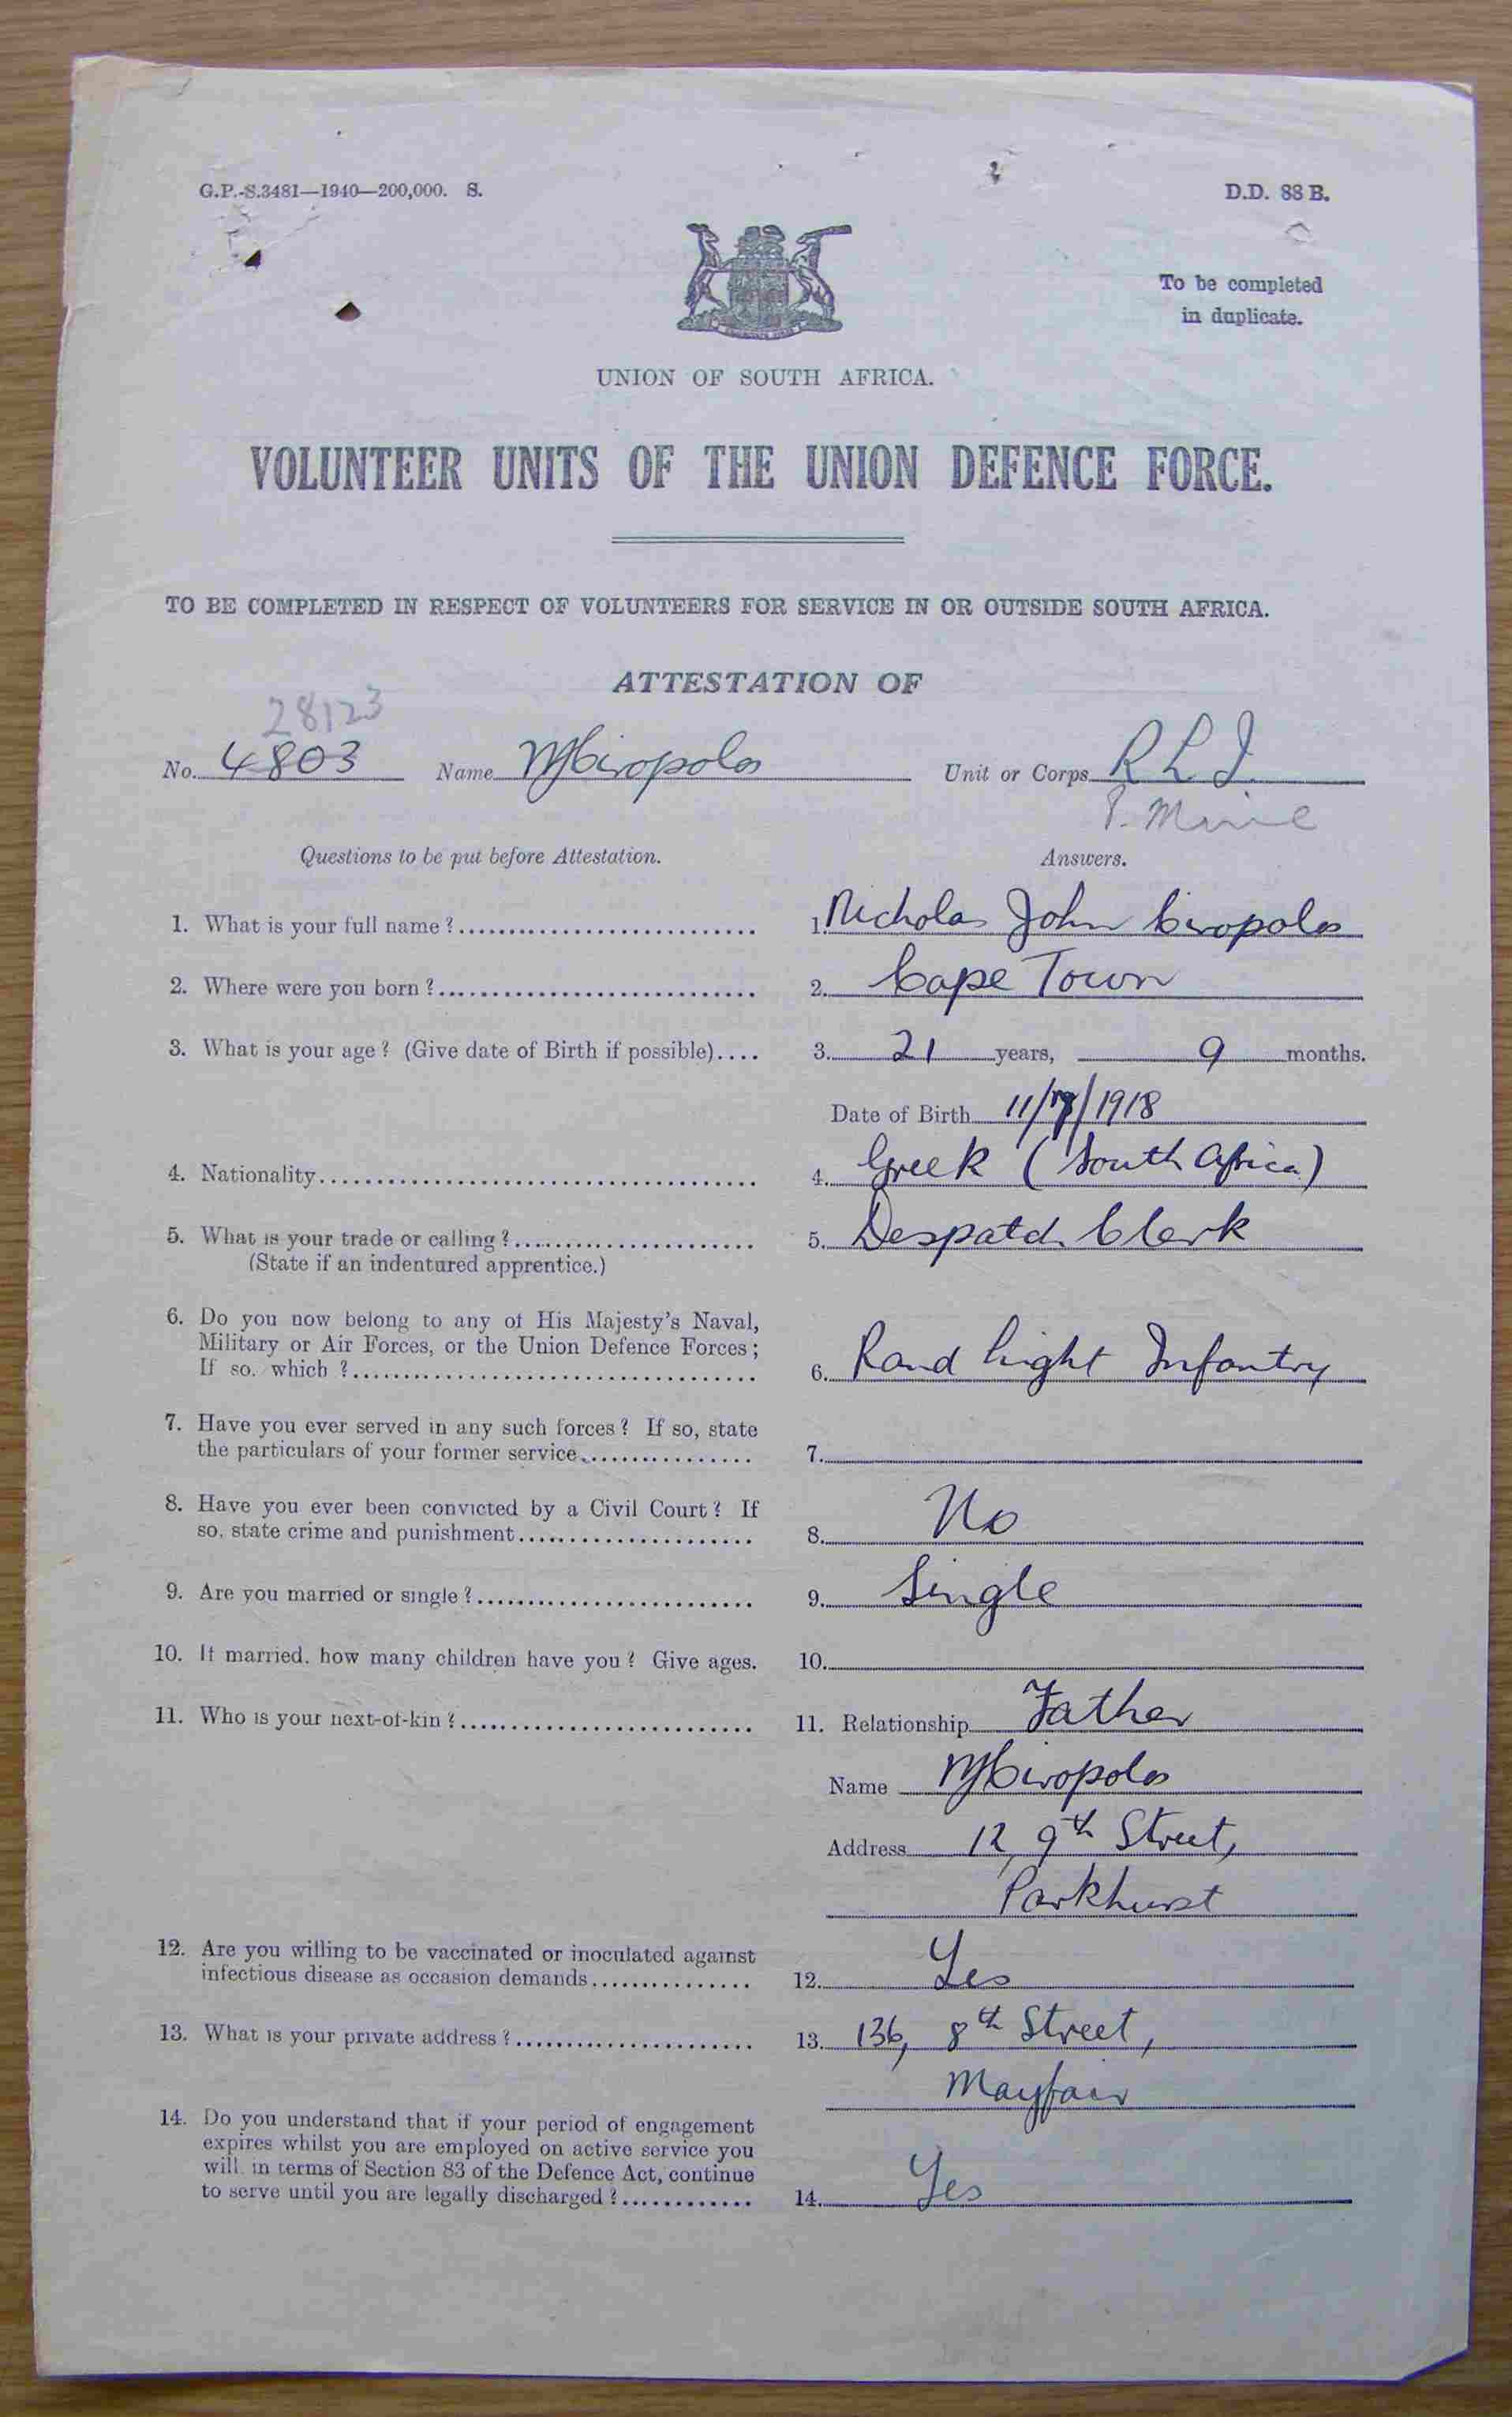 G.P.-S.3481—1940—200,000. S.
D.D. 88 B.
To be completed
in duplicate.
UNION OF SOUTH AFRICA.
VOLUNTEER UNITS OF THE UNION DEFENCE FORCE.
TO BE COMPLETED IN RESPECT OF VOLUNTEERS FOR SERVICE IN OR OUTSIDE SOUTH AFRICA.
ATTESTATION OF
28123
No. 4803 Name NJCiropolos Unit or Corps R L I
Questions to be put before Attestation. Answers.
1. What is your full name? 1. Nicholas John Ciropolos
2. Where were you born? 2. Cape Town
3. What is your age? (Give date of Birth if possible) 3. 21 years, 9 months.
Date of Birth 11/ /1918
4. Nationality 4. Greek (South Africa)
5. What is your trade or calling? 5. Despatch Clerk
(State if an indentured apprentice.)
6. Do you now belong to any of His Majesty's Naval,
Military or Air Forces, or the Union Defence Forces;
If so, which? 6. Rand Light Infantry
7. Have you ever served in any such forces? If so, state
the particulars of your former service 7.
8. Have you ever been convicted by a Civil Court? If
so, state crime and punishment 8. No
9. Are you married or single? 9. Single
10. If married, how many children have you? Give ages. 10.
11. Who is your next-of-kin? 11. Relationship Father
Name NJCiropolos
Address 12, 9th Street,
Parkhurst
12. Are you willing to be vaccinated or inoculated against
infectious disease as occasion demands 12. Yes
13. What is your private address? 13. 136, 8th Street,
Mayfair
14. Do you understand that if your period of engagement
expires whilst you are employed on active service you
will, in terms of Section 83 of the Defence Act, continue
to serve until you are legally discharged? 14. Yes